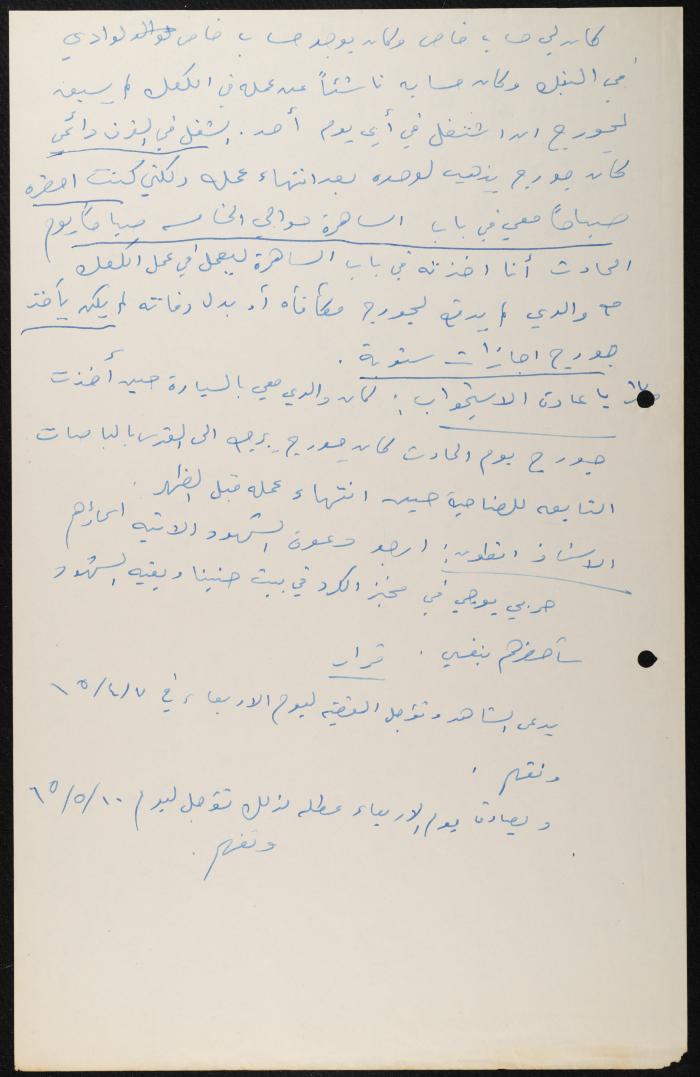 كان لي حساب خاص وكان يوجد حساب خاص لوالدي
في البنك وكان حسابه ناشئاً عن عمله في الكعك لم يسبق
لجورج ان اشتغل في أي يوم أحد . الشغل في الفرن دائمي
كان جورج يذهب لوحده بعد انتهاء عمله ولكني كنت احضره
صباحاً معي في باب الساهرة حوالي الخامسه صباحاً يوم
الحادث أنا اخذته في باب الساهرة ليعمل في عمل الكعك
والدي لم يدفع لجورج مكافأه أو بدل وفاته لم يكن يأخذ
جورج اجازات سنوية .
باعادة الاستجواب : كان والدي معي بالسيارة حين أخذت
جورج يوم الحادث كان جورج يرجع الى القدس بالباصات
التابعه للضاحية حين انتهاء عمله قبل الظهر .
الاستاذ انطون : ارجو دعوة الشهود الاتيه اسماؤهم
حربي يوجي في مخبز الكرد في بيت حنينا وبقيه الشهود
سأحضرهم بنفسي . قرار
يدعى الشاهد وتؤجل القضيه ليوم الاربعاء في ٧/٤/٦٥
وتفهم .
ويصادف يوم الاربعاء عطله لذلك تؤجل ليوم ١٠/٥/٦٥
وتفهم .